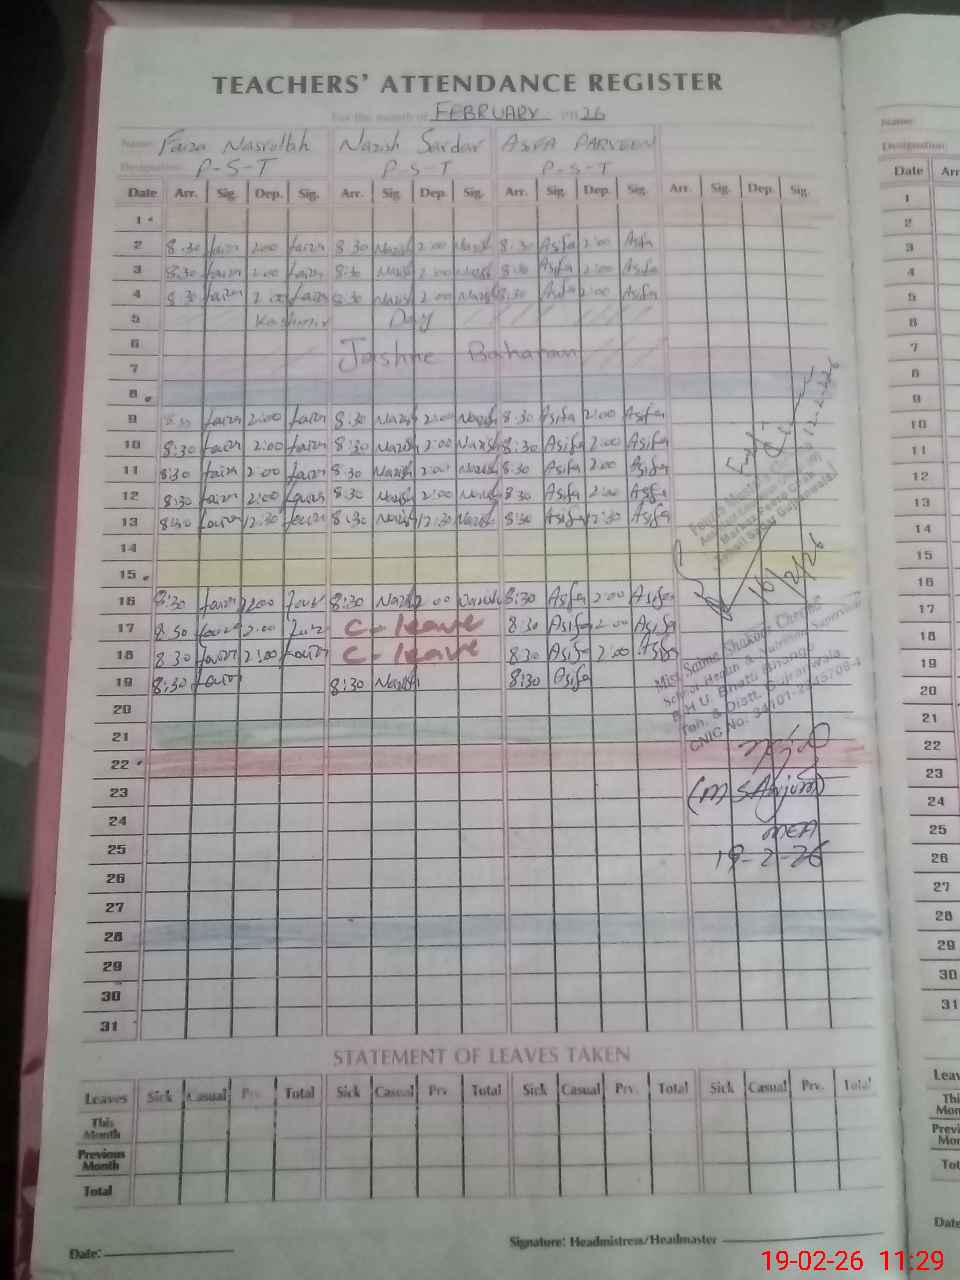 TEACHERS' ATTENDANCE REGISTER
For the month of FEBRUARY 26
Name: Faiza Nasrullah Nazish Sardar Asifa PARVEEN
Designation: P-S-T P-S-T P-S-T
Date Arr. Sig. Dep. Sig. Arr. Sig. Dep. Sig. Arr. Sig. Dep. Sig. Arr. Sig. Dep. Sig.
1
2 8:30 Faiza 2:00 Faiza 8:30 Nazish 2:00 Nazish 8:30 Asifa 2:00 Asifa
3 8:30 Faiza 2:00 Faiza 8:30 Nazish 2:00 Nazish 8:30 Asifa 2:00 Asifa
4 8:30 Faiza 2:00 Faiza 8:30 Nazish 2:00 Nazish 8:30 Asifa 2:00 Asifa
5 Kashmir Day
6
7 Jashne Baharan
8
9 8:30 Faiza 2:00 Faiza 8:30 Nazish 2:00 Nazish 8:30 Asifa 2:00 Asifa
10 8:30 Faiza 2:00 Faiza 8:30 Nazish 2:00 Nazish 8:30 Asifa 2:00 Asifa
11 8:30 Faiza 2:00 Faiza 8:30 Nazish 2:00 Nazish 8:30 Asifa 2:00 Asifa
12 8:30 Faiza 2:00 Faiza 8:30 Nazish 2:00 Nazish 8:30 Asifa 2:00 Asifa
13 8:30 Faiza 12:30 Faiza 8:30 Nazish 12:30 Nazish 8:30 Asifa 12:30 Asifa
14
15
16 8:30 Faiza 2:00 Faiza 8:30 Nazish 2:00 Nazish 8:30 Asifa 2:00 Asifa
16/2/26
17 8:30 Faiza 2:00 Faiza C-leave 8:30 Asifa 2:00 Asifa
18 8:30 Faiza 2:00 Faiza C-leave 8:30 Asifa 2:00 Asifa
19 8:30 Faiza 8:30 Nazish 8:30 Asifa
School Health & Nutrition Supervisor
Teh. & Distt. Gujranwala
CNIC No. 34101-
20
21
22
23
(M S Anjum)
24
25
MEA
19-2-26
26
27
28
29
30
31
STATEMENT OF LEAVES TAKEN
Leaves Sick Casual Prv. Total Sick Casual Prv. Total Sick Casual Prv. Total Sick Casual Prv. Total
This Month
Previous Month
Total
Date:
Signature: Headmistress/Headmaster
Name:
Designation:
Date Arr
1
2
3
4
5
6
7
8
9
10
11
12
13
14
15
16
17
18
19
20
21
22
23
24
25
26
27
28
29
30
31
19-02-26 11:29